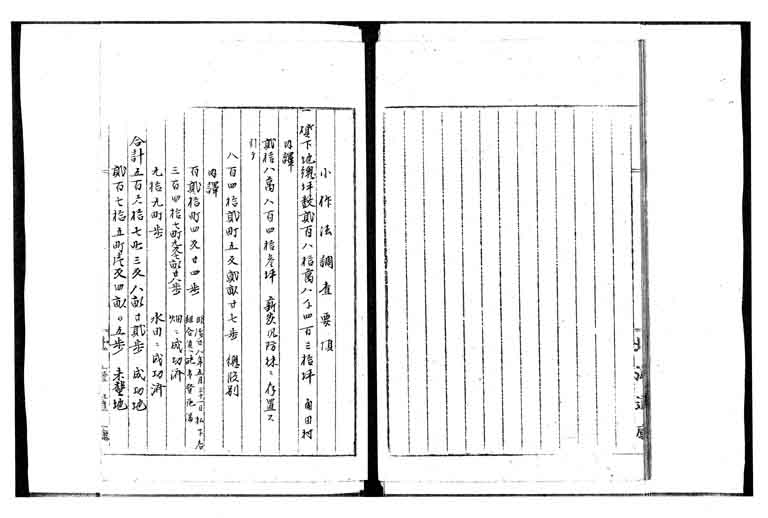 小作法調査要項
一 貸下地総坪数貳百八拾萬八千四百三拾坪 角田村
内譯
貳拾八萬八百四拾参坪 薪炭及防林ニ存置ス
引テ
八百四拾貳町五反貳畝廿七歩 総段別
内譯
百貳拾町四反廿四歩 明治廿八年五月三十一日払下
三百四拾七町九反七畝廿八歩 畑ニ成功済
九拾九町歩 水田ニ成功済
合計五百六拾七町三反八畝廿貳歩 成功地
貳百七拾五町 反四畝〇五歩 未墾地
北海道庁